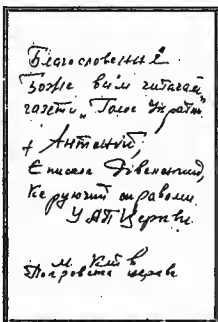 Благословення
Боже всім читачам
газети „Голос України“.
+ Антоній,
Єпископ
Керуючий справами
УАПЦеркви
м. Київ
Покровська церква